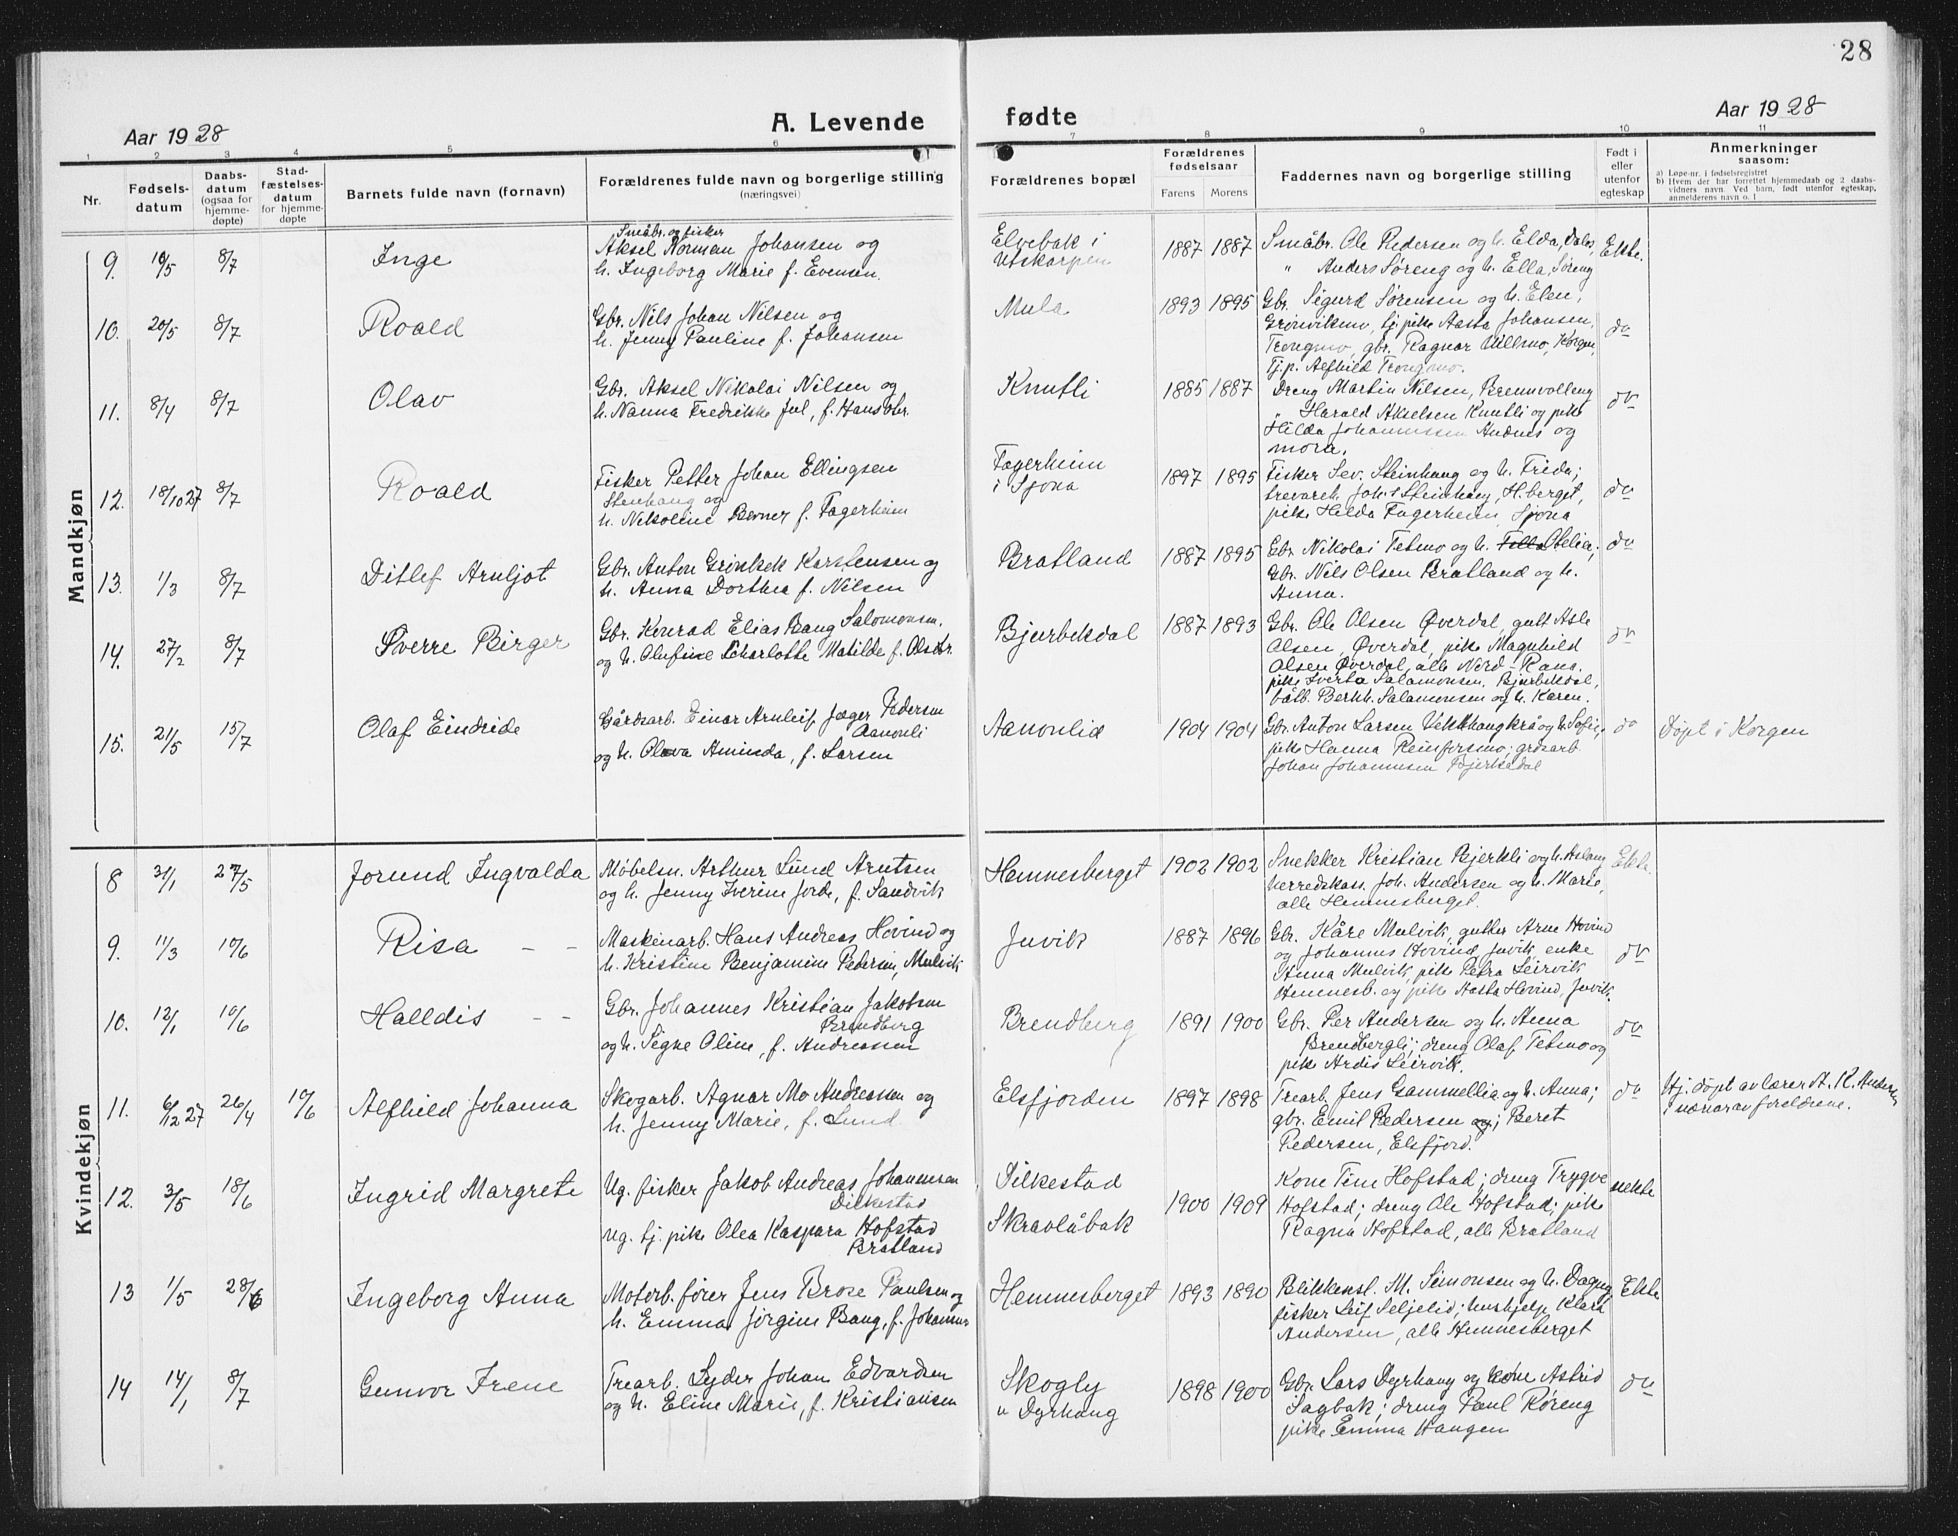 28
Aar 1928
A. Levende
fødte
Aar 1928
1 2 3 4 5 6 7 8 9 10 11
Nr.
Fødsels-
datum
Daabs-
datum
(ogsaa for
hjemme-
døpte)
Stad-
fæstelses-
datum
for hjemme-
døpte
Barnets fulde navn (fornavn)
Forældrenes fulde navn og borgerlige stilling
(næringsvei)
Forældrenes bopæl
Forældrenes
fødselsaar
Farens Morens
Faddernes navn og borgerlige stilling
Født i
eller
utenfor
egteskap
Anmerkninger
saasom:
a) Løpe-nr. i fødselsregistret
b) Hvem der har forrettet hjemmedaab og 2 daabs-
vidners navn. Ved barn, født utenfor egteskap,
anmelderens navn o. l
Mandkjøn
9. 10/5 8/7 Inge
Småbr. og fisker
Aksel Norman Johansen og
h. Ingeborg Marie f. Evensen.
Elvebak i
Utskarpen
1887 1887
Småbr. Ole Pedersen og h. Elda, Dalos,
" Anders Søreng og h. Ella, Søreng
Ekte.
10. 20/5 8/7 Roald
Gbr. Nils Johan Nilsen og
h. Jenny Pauline f. Johansen
Mula
1893 1895
Gbr. Sigurd Sørensen og h. Elen,
Grönvikmo, tj.pike Aasta Johansen,
Trongmo, gbr. Ragnar Ullsmo, Korgen,
Tj.p. Alfhild Trongmo.
do
11. 8/4 8/7 Olav
Gbr. Aksel Nikolai Nilsen og
h. Nanna Fredrikke Jul, f. Hansdtr.
Knutli
1885 1887
Dreng Martin Nilsen, Brennvolleng
" Harald Akselsen Knutli og pike
Hilda Johannessen Andnes og
mora.
do
12. 18/10 27 8/7 Roald
Fisker Petter Johan Ellingsen
Stenhaug og
h. Nikoline Berner f. Fagerheim
Fagerheim
i Sjona
1897 1895
Fisker Sev. Steinhaug og h. Frida;
trevareh. Joh. Steinhaug, H.berget,
pike Hilda Fagerheim Sjona
do
13. 1/3 8/7 Ditlef Arnljot
Gbr. Anton Grönbek Karstensen og
h. Anna Dorthea f. Nilsen
Bratland
1887 1895
Gbr. Nikolai Tetmo og h. Otelie,
Gbr. Nils Olsen Bratland og h.
Anna.
do
14. 27/2 8/7 Sverre Birger
Gbr. Konrad Elias Bang Salomonsen.
og h. Olufine Charlotte Matilde f. Olsdtr.
Bjurbekdal
1887 1893
Gbr. Ole Olsen Øverdal, gutt Asle
Olsen, Øverdal, pike Magnhild
Olsen Øverdal, alle Nord-Rana.
pike Sverta Salamonsen, Bjurbekdal,
båtb. Bernh. Salamonsen og h. Karen.
do
15. 21/5 15/7 Olaf Eindride
Gårdsarb. Einar Arnleif Jæger Pedersen
Aanonli
og h. Olava Aminda, f. Larsen
Aanonlid
1904 1904
Gbr. Anton Larsen Vekkhaugkrå og h. Sofie,
pike Hanna Reinforsmo; grdsarb
Johan Johannesen Bjerkedal
do
Døpt i Korgen
Kvindekjøn
8 31/1 27/5 Jorund Ingvalda
Møbelsn. Arthur Lund Arntsen
og h. Jenny Iverine Jorde, f. Sandvik
Hemnesberget
1902 1902
Snekker Kristian Bjerkli og h. Aslaug
herredskass. Joh. Andersen og h. Marie,
alle Hemnesberget.
Ekte.
9. 11/3 10/6 Risa - -
Maskinarb. Hans Andreas Hovind og
h. Kristine Benjamine Pedersen, Mulvik
Juvik
1887 1896
Gbr. Kåre Mulvik, gutter Arne Hovind
og Johannes Hovind, Juvik, enke
Anna Mulvik, pike Petra Leirvik
Hemnesb. og pike Aasta Hovind, Juvik.
do
10. 12/1 10/6 Halldis - -
Gbr. Johannes Kristian Jakobsen
Brendberg
og h. Signe Oline, f. Andreassen
Brendberg
1891 1900
Gbr. Per Andersen og h. Anna
Brendbergli; dreng Olaf Tetmo og
pike Ardis Leirvik.
do
11. 6/12 27 26/4 10/6 Alfhild Johanna
Skogarb. Agnar Mo Andreassen og
h. Jenny Marie, f. Lund.
Elsfjorden
1897 1898
Trearb. Jens Gammellia og h. Anna;
gbr. Emil Pedersen og; Beret
Pedersen, Elsfjord.
do
Hj. døpt av lærer A. K. Andersen
i nærvær av foreldrene.
12. 3/5 18/6 Ingrid Margrete
Ug. fisker Jakob Andreas Johannesen
Dilkestad
ug. tj. pike Olea Kaspara Hofstad
Bratland
Dilkestad
Skravlåbak
1900 1909
Kone Tine Hofstad; dreng Trygve
Hofstad; dreng Ole Hofstad; pike
Ragna Hofstad, alle Bratland
uekte
13 1/5 28/6 Ingeborg Anna
Motorb. fører Jens Brose Paulsen og
h. Emma Jørgine Bang, f. Johannes
Hemnesberget
1893 1890
Blikkensl. M. Simonsen og h. Dagny,
fisker Leif Seljelid; hushjelp Klara
Andersen, alle Hemnesberget
Ekte
14 14/1 8/7 Gunvor Irene
Trearb. Syder Johan Edvardsen
og h. Eline Marie, f. Kristiansen
Skogly
u Dyrhaug
1898 1900
Gbr. Lars Dyrhaug og kone Astrid
Sagbak; dreng Paul Røreng
pike Emma Haugen
do